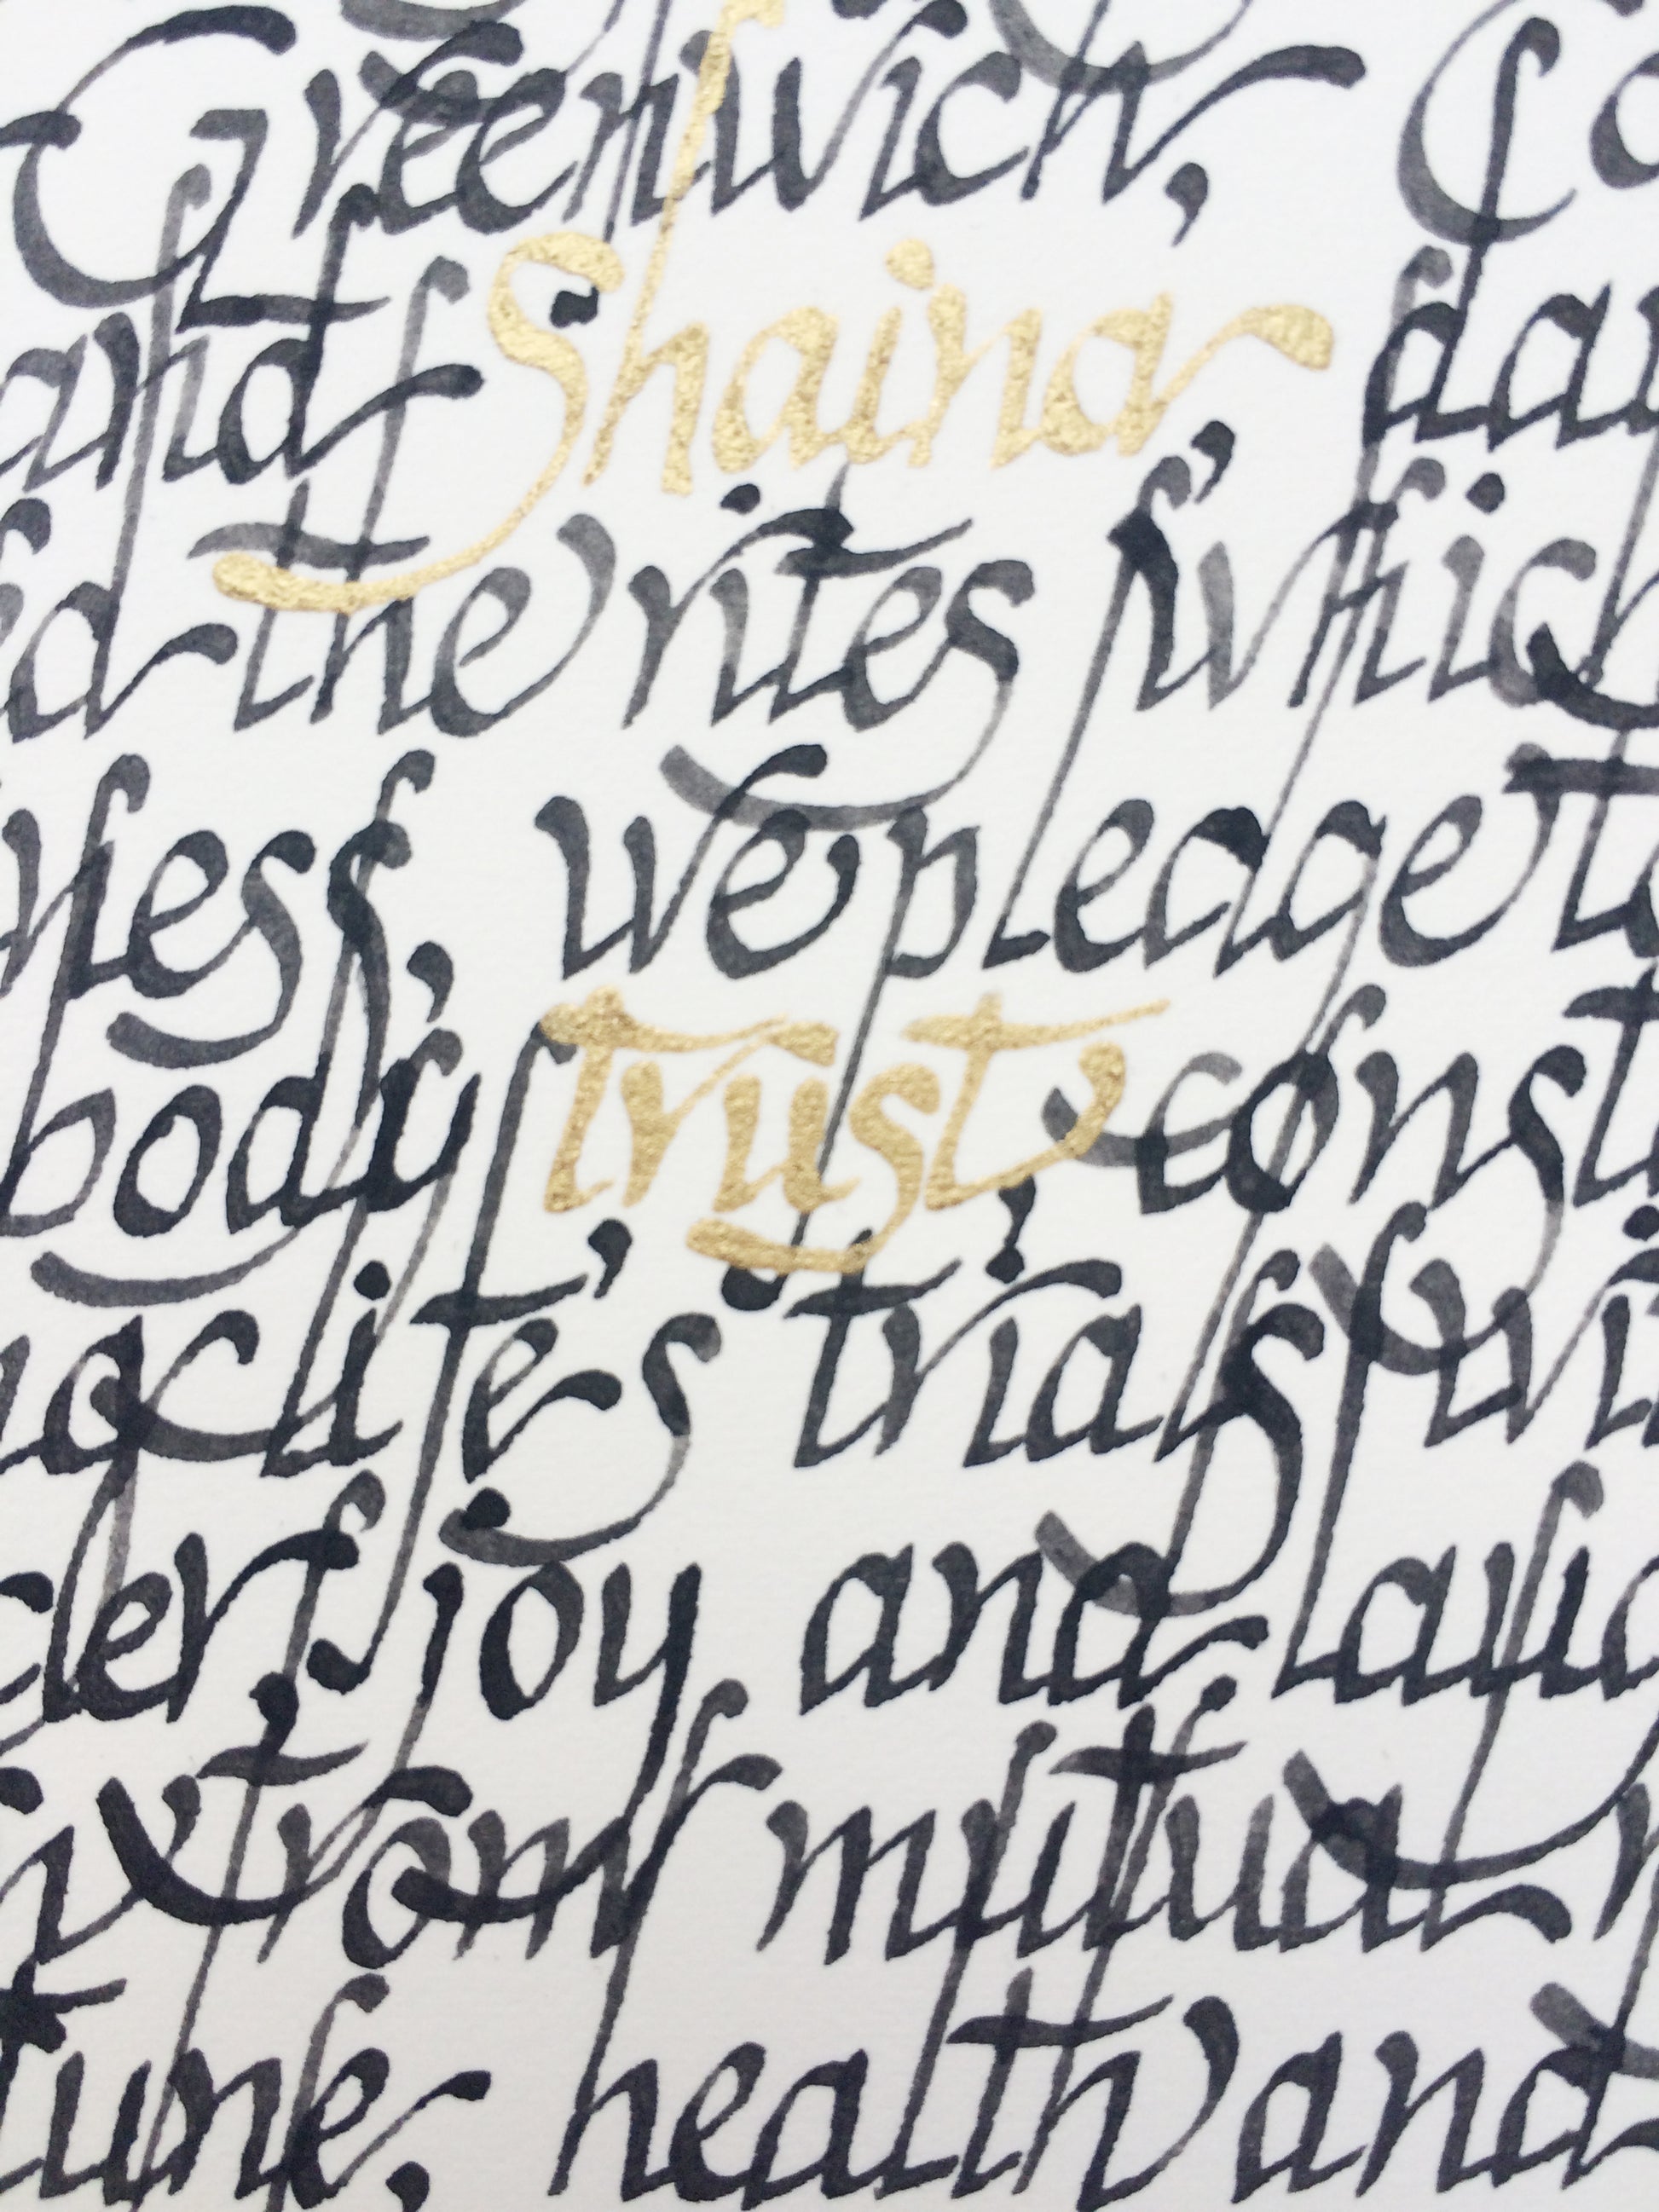 Greenwich, Co
and Shaina, dau
ed the rites which
ness, we pledge to
body, trust, const
life's trials wit
der, joy, and laug
from mutual
tune, health and